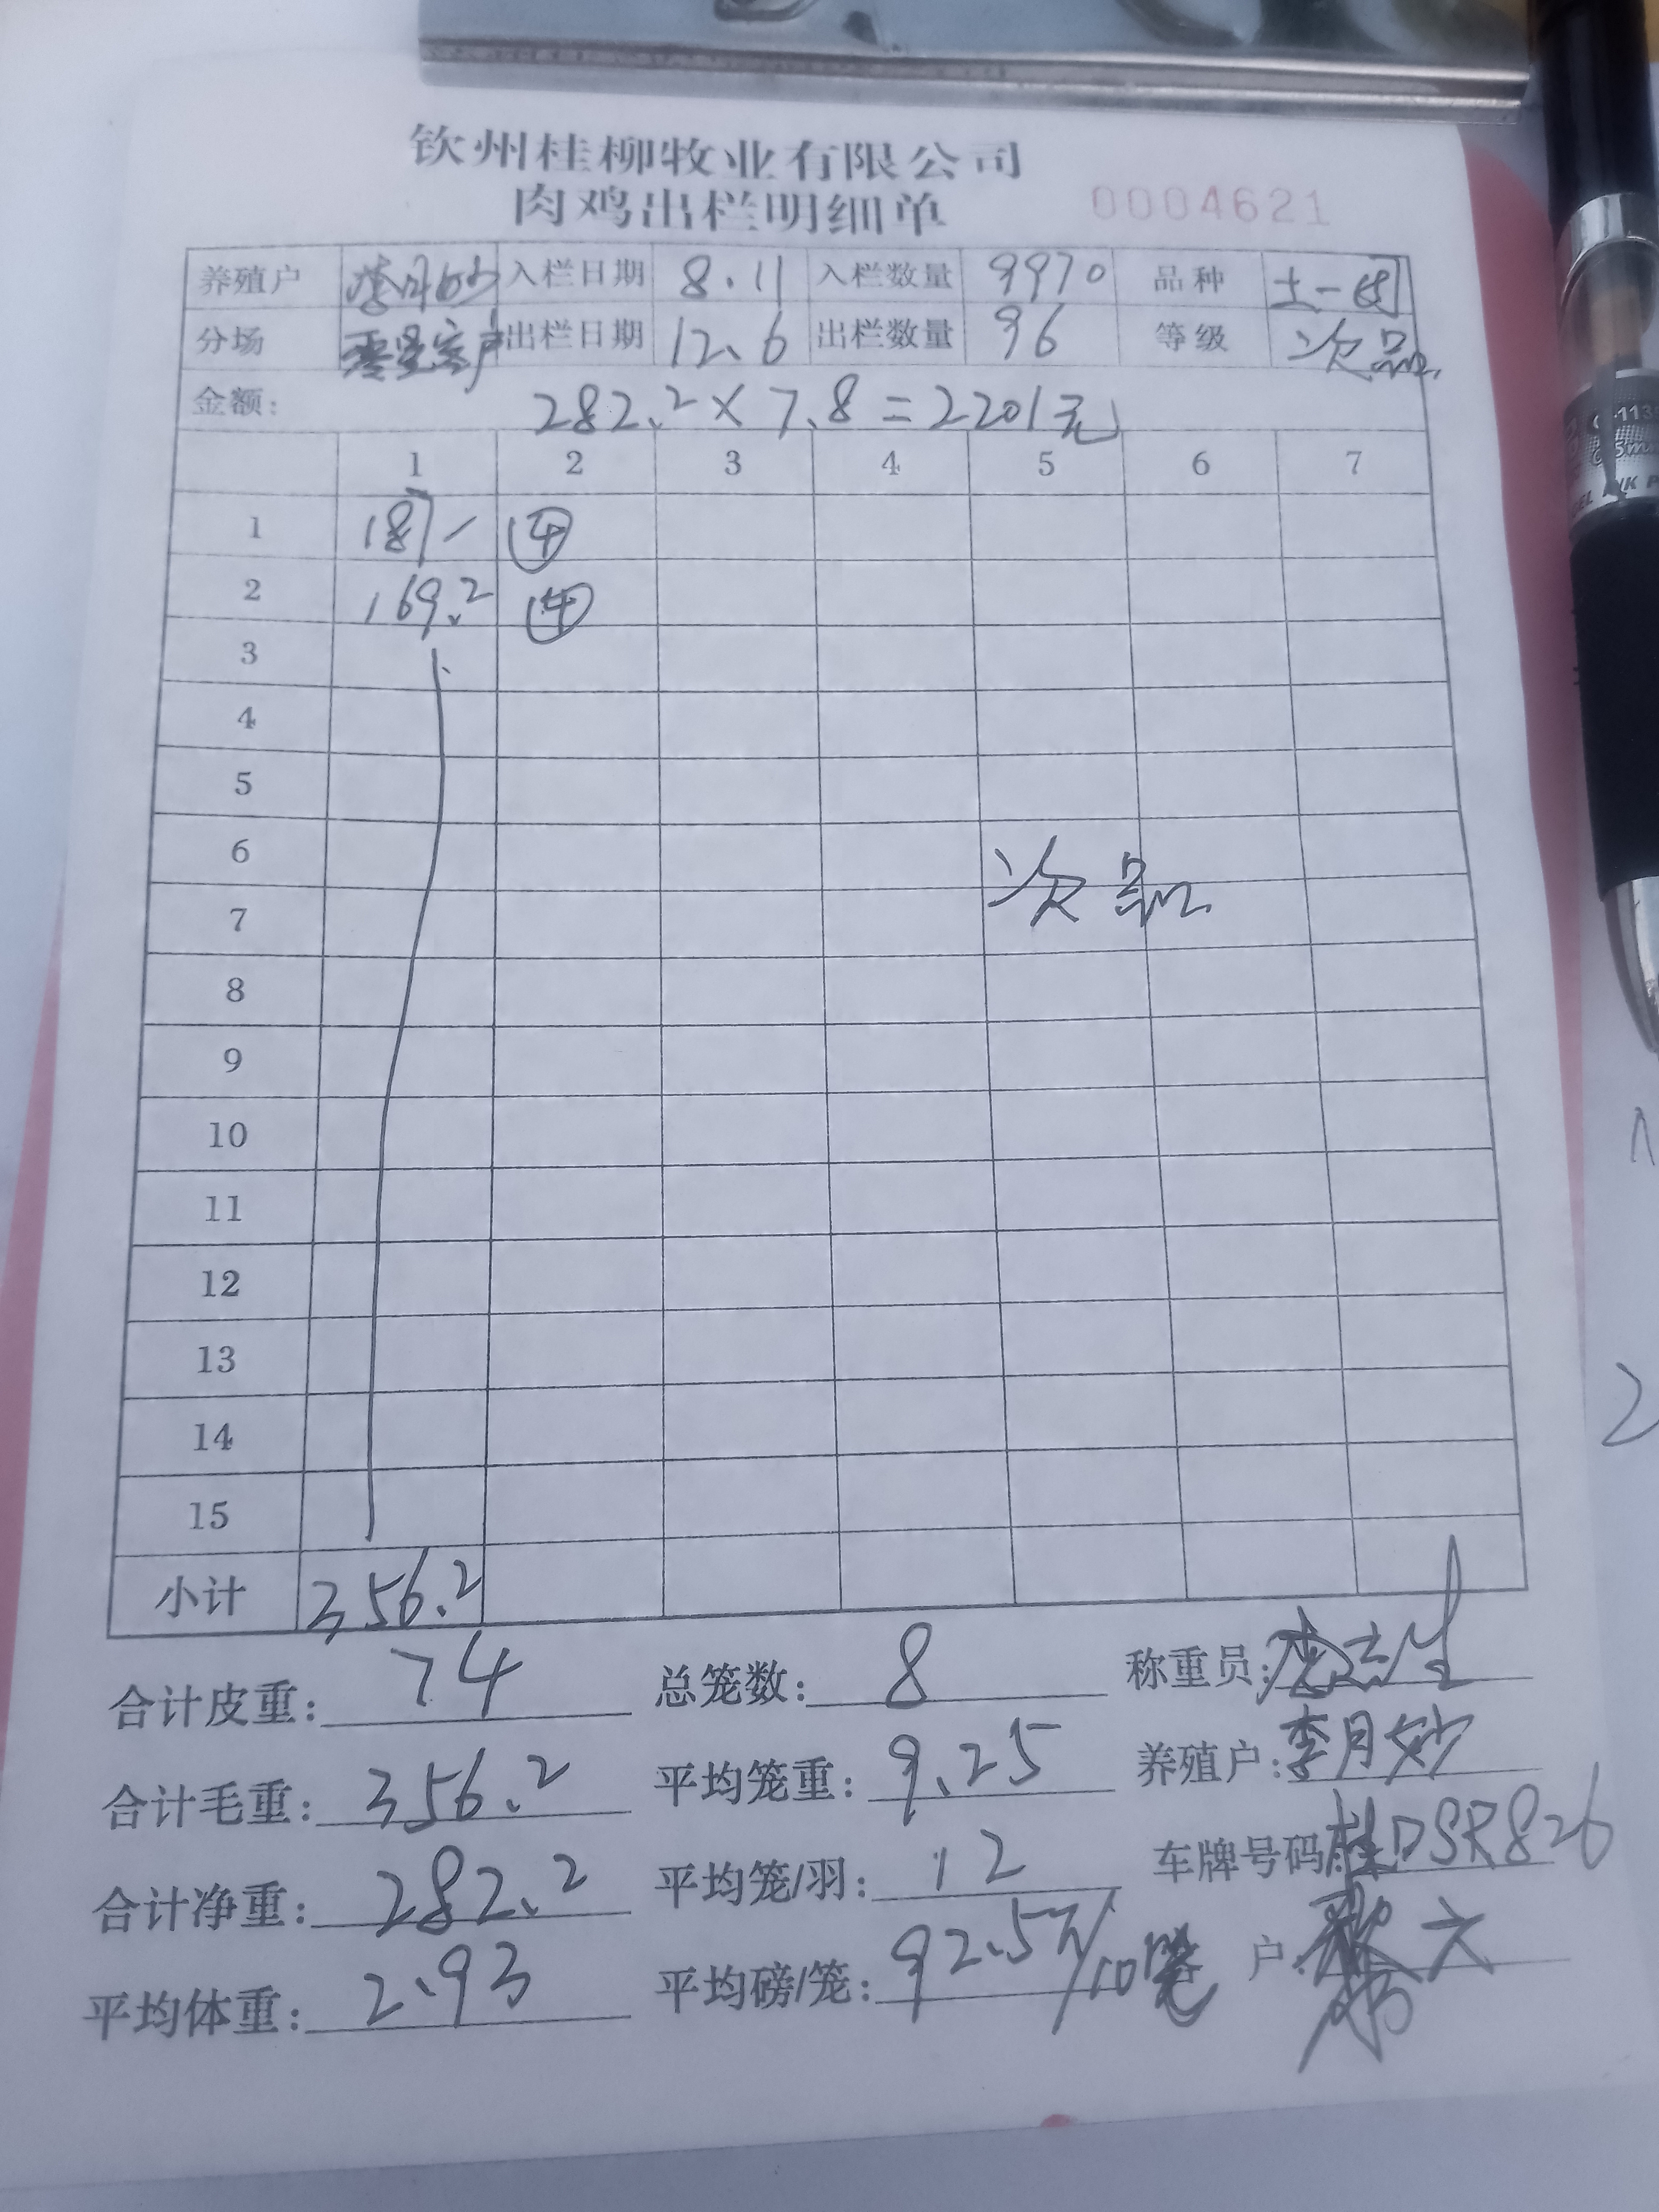 钦州桂柳牧业有限公司
肉鸡出栏明细单 0004621
养殖户 李月妙 入栏日期 8.11 入栏数量 9970 品种 土一
分场 零星客户 出栏日期 12.6 出栏数量 96 等级 次品
金额: 282.2×7.8=2201元
1 2 3 4 5 6 7
1 187 ④
2 169.2 ④
3
4
5
6
次品
7
8
9
10
11
12
13
14
15
小计 356.2
合计皮重: 74 总笼数: 8 称重员:
合计毛重: 356.2 平均笼重: 9.25 养殖户: 李月妙
合计净重: 282.2 平均笼/羽: 12 车牌号码 桂DSR826
平均体重: 2.93 平均磅/笼: 92.5斤/10笼 户: 六